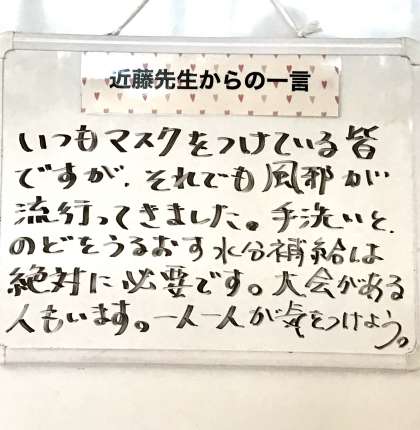 近藤先生からの一言
いつもマスクをつけている皆
ですが、それでも風邪が
流行ってきました。手洗いと、
のどをうるおす水分補給は
絶対に必要です。大会がある
人もいます。一人一人が気をつけよう。